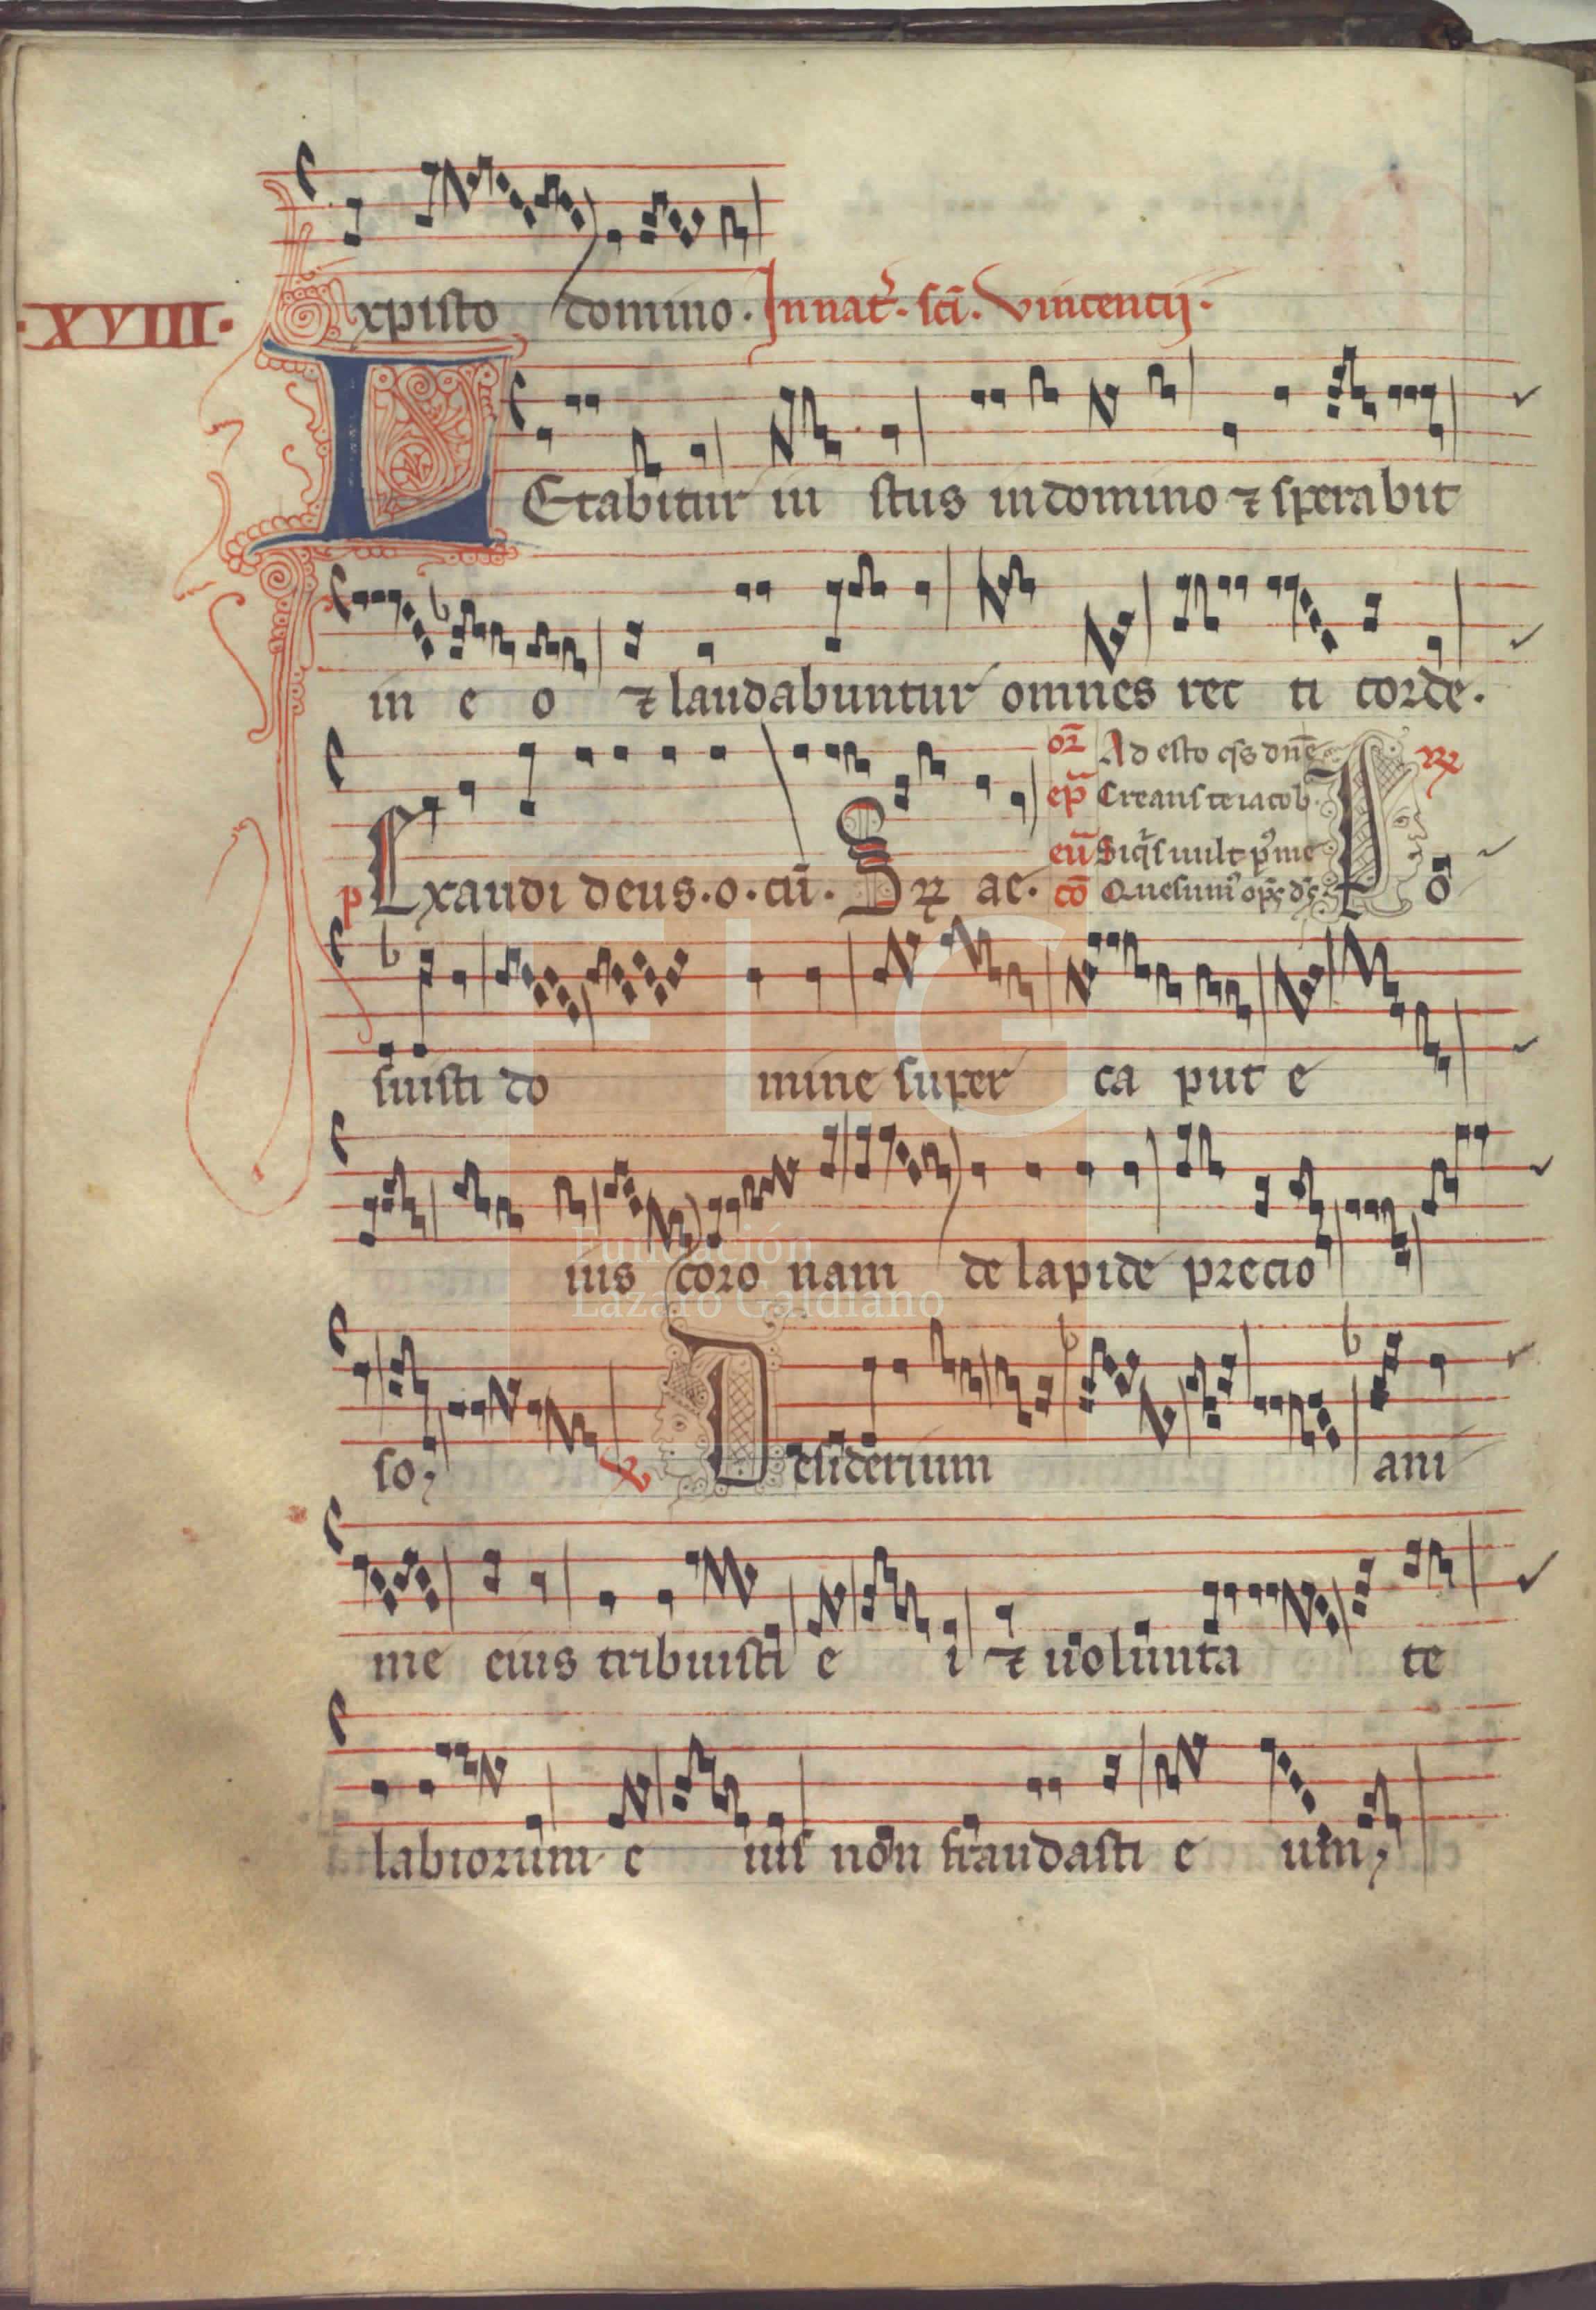 xpisto domino. In nat̄. sc̄i. Vincentij.
·XVIII·
LEtabitur iu stus in domino ⁊ sperabit
in e o ⁊ laudabuntur omnes rec ti corde.
or̄ Ad esto qs̄ dn̄e
ep̄ Creauſ te iacob.
eū Si q̄s uult p̄ me
p Exaudi deus. o. cū. S℞ ae. cō Quesum̄ op̄s ds̄ P o
suisti do mine super ca put e
ius coro nam de lapide precio
so, ℣ Desiderium ani
me eius tribuisti e i ⁊ uolunta te
labiorum e iuſ non fraudasti e um,
FLG
Fundación
Lázaro Galdiano